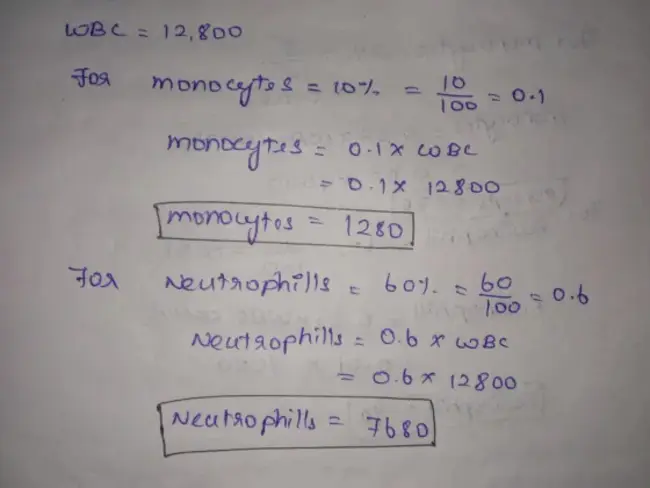 WBC = 12,800
For monocytes = 10% = 10/100 = 0.1
monocytes = 0.1 x WBC
= 0.1 x 12800
monocytes = 1280
For Neutrophills = 60% = 60/100 = 0.6
Neutrophills = 0.6 x WBC
= 0.6 x 12800
Neutrophills = 7680